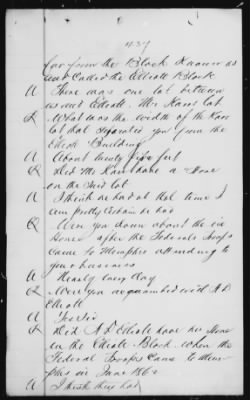 437
far from the Block known as
and Called the Elliott Block
A There was one lot between
us and Elliott. Mr Kans lot
Q What was the width of the Kans
lot that separated you from the
Elliott Building
A About twenty five feet
Q Did Mr Kans have a House
on the said lot
A I think he had at that time I
am pretty certain he had
Q Were you down about the
House after the Federal troops
came to Memphis attending to
your business
A Nearly every day
Q Were you acquainted with A D
Elliott
A Yes Sir
Q Did A D Elliott have his Store
in the Elliott Block when the
Federal troops Came to Mem
phis in June 1862
A I think they had